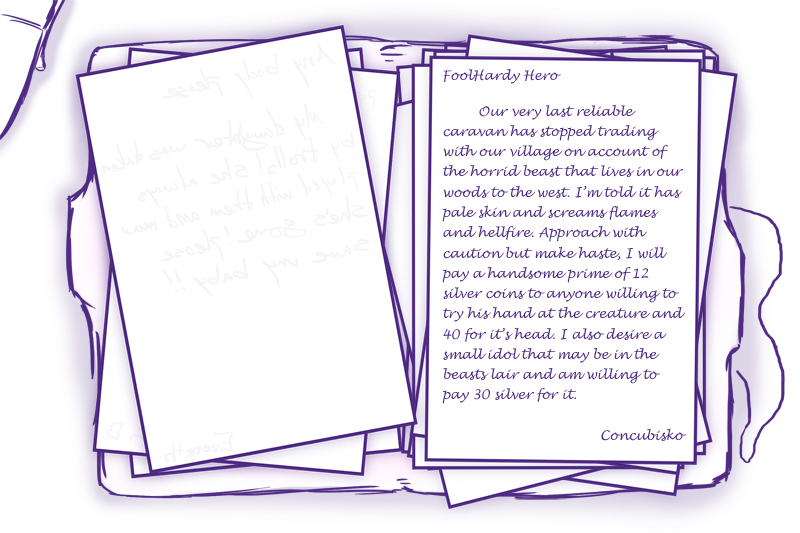 Any body please
My daughter was taken
by trolls! She always
played with them and now
she's gone! please
save my baby!!
FoolHardy Hero
Our very last reliable
caravan has stopped trading
with our village on account of
the horrid beast that lives in our
woods to the west. I'm told it has
pale skin and screams flames
and hellfire. Approach with
caution but make haste, I will
pay a handsome prime of 12
silver coins to anyone willing to
try his hand at the creature and
40 for it's head. I also desire a
small idol that may be in the
beasts lair and am willing to
pay 30 silver for it.
Concubisko